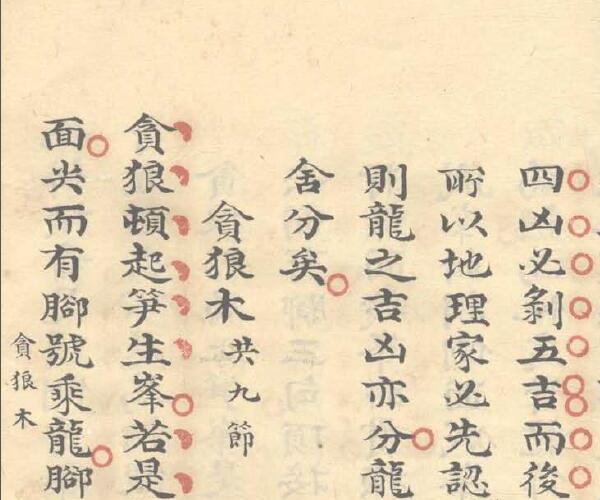 四凶必剝五吉而後
所以地理家必先認
則龍之吉凶亦分龍
舍分矣
貪狼木共九節
貪狼頓起笋生峯若是
面尖而有腳號乘龍腳
貪狼木